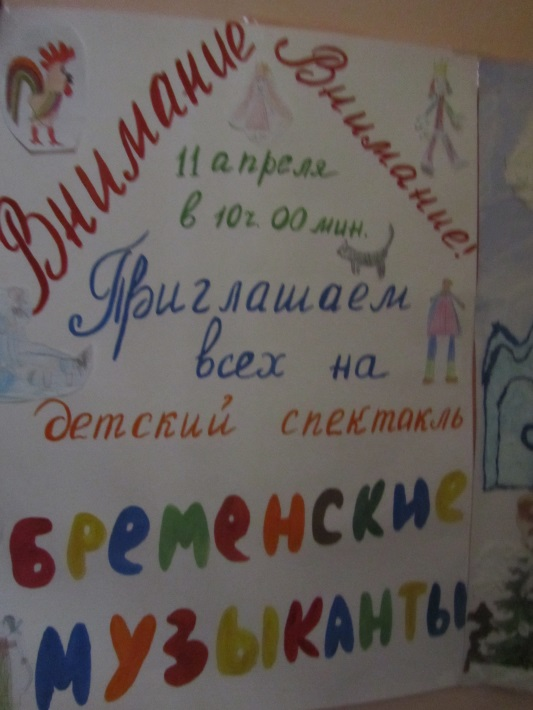 Внимание
Внимание!
11 апреля
в 10ч. 00 мин.
Приглашаем
всех на
детский спектакль
БРЕМЕНСКИЕ
МУЗЫКАНТЫ